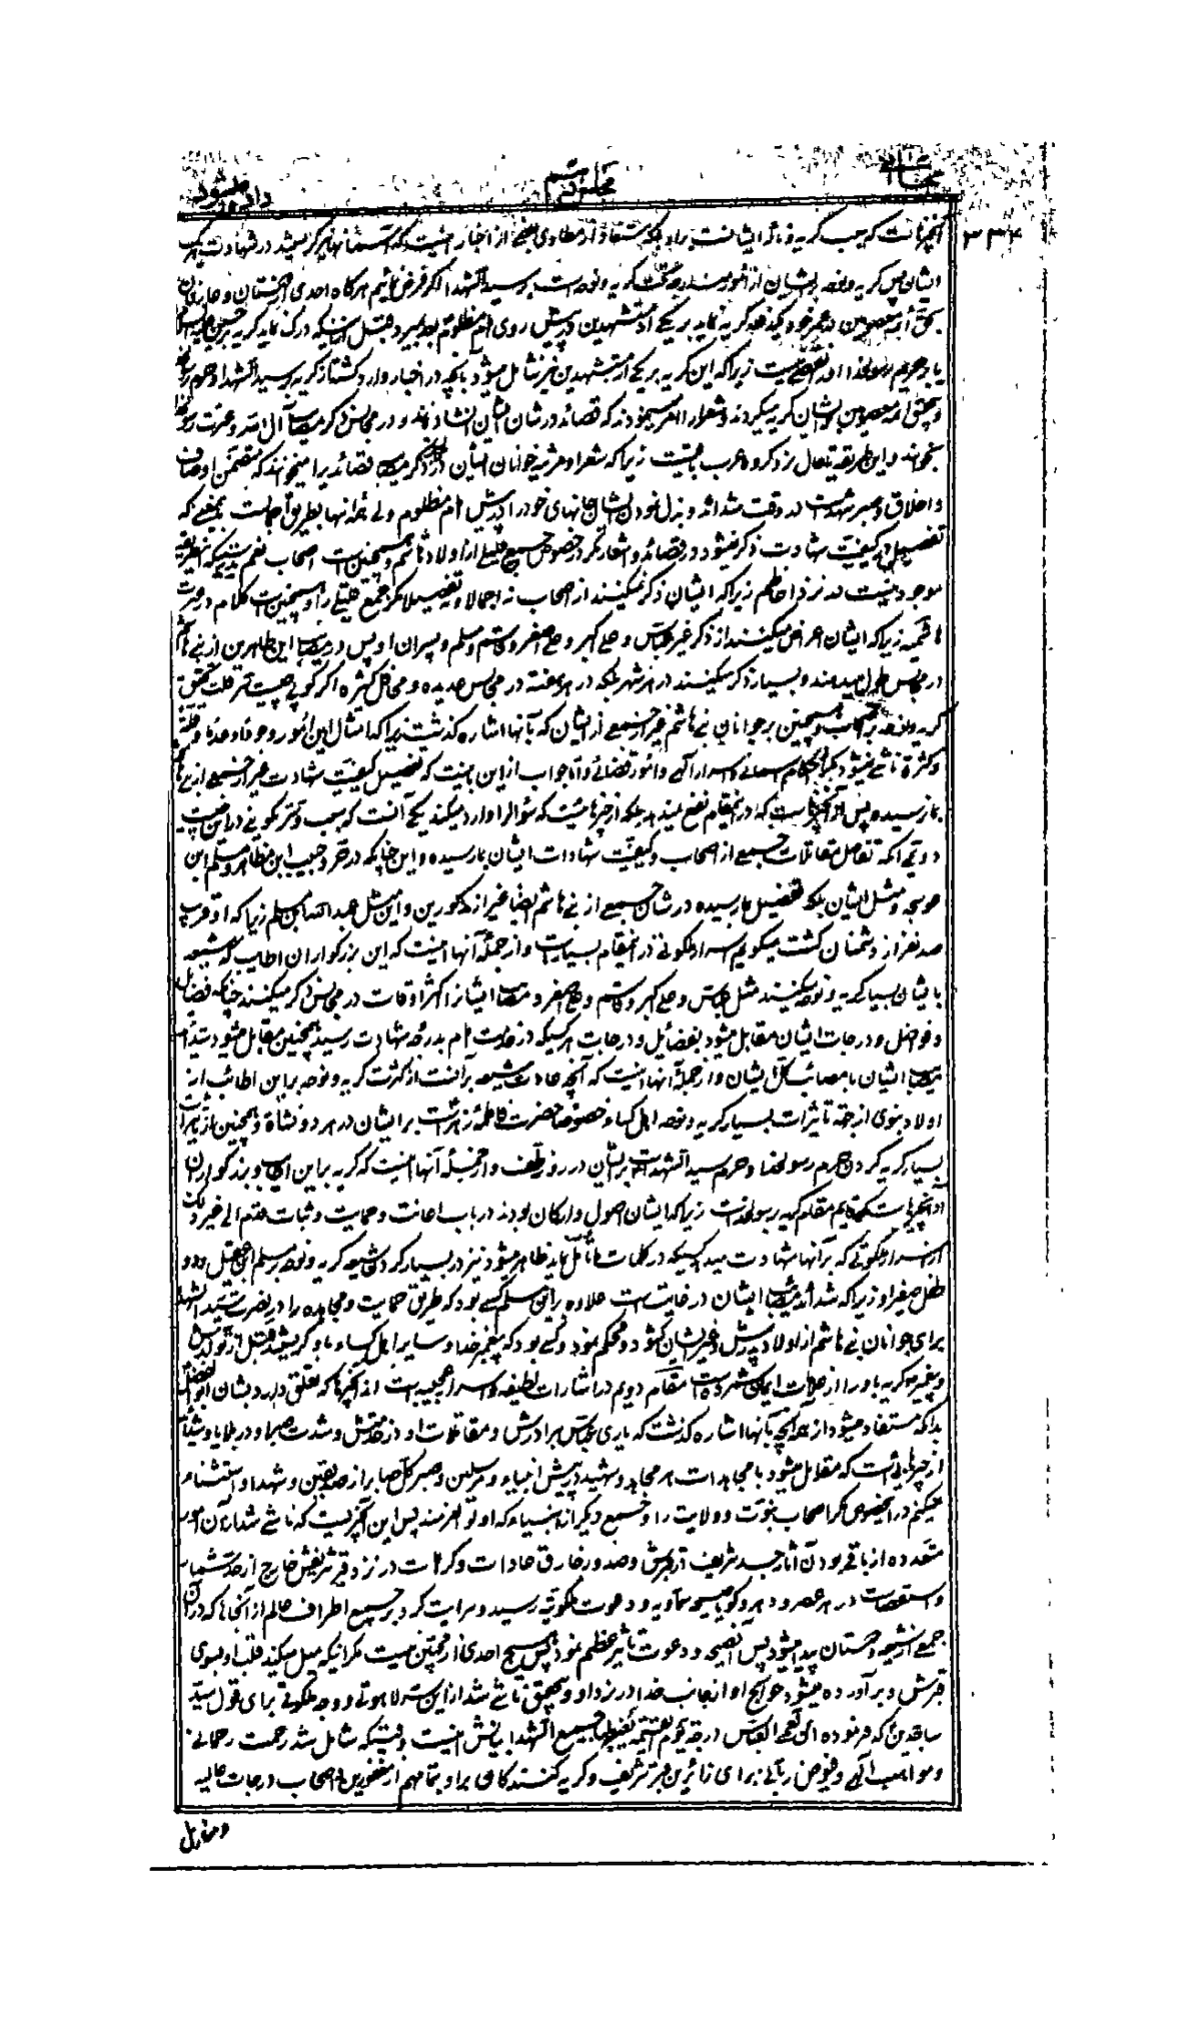 مجلس بیستم
۳۳۴
آنچیزیست که سبب گریه و ناله ایشانست
ایشان پس گریه و نوحه بر ایشان از امور مندرجه تحت گریه و نوحه است بر سید الشهدا اگر فرض نمائیم هرگاه احدی از دوستان و عارفان
بحق ائمه معصومین در عمر خود گریه نماید بر یکی از مستشهدین در پیش روی امام مظلوم بعد بمیرد قبل از اینکه درک نماید گریه بر حسین
یا بر حریم رسولخدا او زیرا که این گریه بر یکی از مستشهدین نیز شامل میشود آنچه در اخبار وارد گشته از گریه بر سید الشهدا و حرم
و بتحقیق ائمه معصومین بر ایشان گریه میکردند و شعراء را امر مینمودند که قصائد در شان ایشان انشاد نمایند و در مجالس ذکر مصائب آل الله و عترت رسول
بخوانند و این طریقه تعامل نزد کرد و عرب نیست زیرا که شعراء و مرثیه خوانان ایشان در ذکر مصائب قصائد را میخوانند که متضمن اوصاف
و اخلاق و صبر شهدا است در وقت شدائد و بذل نمودن ایشان جانهای خود را در پیش امام مظلوم ولی همه آنها بطریق اجمالست بمعنی که
تفصیل در کیفیت شهادت ذکر نمیشود در قصائد و اشعار مگر در خصوص جمع قلیلی از اولاد هاشم و همچنین است اصحاب نعم
موجود نیست در نزد اعاظم زیرا که ایشان ذکر نمیکنند از اصحاب نه اجمالا و نه تفصیلا مگر جمع قلیلی را و همچنین است کلام در عترت
هاشمیه زیرا که ایشان اعراض میکنند از ذکر غیر عباس و علی اکبر و علی اصغر و قاسم و مسلم و پسران او پس در مصائب این طاهرین از بنی هاشم
در مجالس طول میدهند و بسیار ذکر میکنند در هر شهر بلکه در هر هفته در مجالس عدیده و محافل کثیره اگر گوئی چیست سر قلت
گریه و نوحه بر اصحاب و همچنین بر جوانان بنی هاشم غیر از جمعی از ایشان که بآنها اشاره گذشت زیرا که امثال این امور وجودا و عدما و قلة
و کثرة ناشی نمیشود مگر از احکام سمائی و اسرار الهی و امور قضائی و اما جواب از این باینست که تفصیل کیفیت شهادت غیر از جمعی از بنی هاشم
بما نرسیده پس از آنچیزیست که در اینمقام نفع نمیدهد بلکه از چیزهائیست که سؤال را وارد میکند یکی آنست که سبب و سر تکوینی در این چیست
دویم آنکه تفاصیل مقاتلات جمعی از اصحاب و کیفیت شهادات ایشان بما رسیده و این چنانکه در حر و حبیب ابن مظاهر و مسلم ابن
عوسجه و مثل ایشان بلکه تفصیل بما رسیده در شان جمعی از بنی هاشم ایضا غیر از مذکورین و این مثل عبدالله ابن مسلم زیرا که او قریب
صد نفر از دشمنان کشت میگویم اسرار ملکوتی در اینمقام بسیار است و از جمله آنها اینست که این بزرگواران اطایب که شیعه
بایشان بسیار گریه و نوحه میکنند مثل عباس و علی اکبر و قاسم و علی اصغر و مصائب ایشان را اکثر اوقات در مجالس ذکر میکنند چنانکه فضایل
و فواضل و درجات ایشان مقابل میشود بفضائل و درجات هر کسیکه در خدمت امام بدرجه شهادت رسید همچنین مقابل میشود شدائد
مصائب ایشان با مصائب کل ایشان و از جمله آنها اینست که آنچه عادت شیعه بر آنست از کثرت گریه و نوحه بر این اطائب از
اولاد نبوی از جهت تاثیرات بسیار گریه و نوحه اهل کساء خصوصا حضرت فاطمه زهرا است بر ایشان در هر دو نشاة و همچنین از تاثیرات
بسیار گریه کردن حرم رسولخدا و حرم سید الشهدا است بر ایشان در روز طف و از جمله آنها اینست که گریه بر این اطایب و بزرگواران
از آنچیزهاست که قایم مقام گریه بر رسولخداست زیرا که ایشان اصول و ارکان بودند در باب اعانت و حمایت و ثبات قدم الی غیر ذلک
از اسرار ملکوتی که بر آنها شهادت میدهد کسیکه در کلمات ما تامل نماید ظاهر میشود نیز در بسیار کردن شیعه گریه و نوحه بر مسلم ابن عقیل و دو
طفل صغیر او زیرا که شدائد و مصائب ایشان در غایتست علاوه بر این مسلم کسی بود که طریق حمایت و مجاهده را در نصرت سید الشهدا
برای جوانان بنی هاشم از اولاد پدرش و غیر ایشان گشود و محکم نمود و کسی بود که پیغمبر خدا و سایر اهل کساء باو گریستند قبل از تولدش
و پیغمبر گریه باو را از علامات ایمان شمرده است مقام دویم در اشارات لطیفه و اسرار عجیبه است از آنچیزها که تعلق دارد بشان ابوالفضل
بدانکه مستفاد میشود از همه آنچه بآنها اشاره گذشت که یاری عباس برادرش و مقاتلات او در خدمتش و شدت صبر او در بلایا و شدائد
از چیزهائیست که مقابل میشود با مجاهدات هر مجاهد و شهید در پیش انبیاء و مرسلین و صبر کل صابر از صدیقین و شهدا و استثناء
نمیکنم در اینخصوص مگر اصحاب نبوت و ولایت را و جمیع دیگر از انبیاء که اولو العزمند پس این آنچیزیست که ناشی شد از آن امور
متعدده از باقی بودن آثار جسد شریف در قبرش و صدور خارق عادات و کرامات در نزد قبر شریفش خارج از حد شمار
و استقصاست در هر عصر و دهر و گویا صیحه سماویه و دعوت ملکوتیه رسید و سرایت کرد بر جمیع اطراف عالم از آنجاها که در آن
جمعی از شیعه و دوستان پیدا میشود پس آن صیحه و دعوت تاثیر عظیم نمود پس هیچ احدی از محبین نیست مگر اینکه میل میکند قلب او بسوی
قبرش و برآورده میشود حوائج او از جانب خدا در نزد او و بتحقیق ناشی شد از این سر لاهوتی و وجه ملکوتی برای قول سید
ساجدین که فرموده ان لعمی العباس درجة یوم القیمه یغبطها جمیع الشهدا بیانش اینست وقتیکه شامل شد رحمت رحمانی
و مواهب الهی و فیوض ربانی برای زائرین قبر شریف و گریه کنندگان بر او بتمامهم از مغفورین و اصحاب درجات عالیه
و منازل